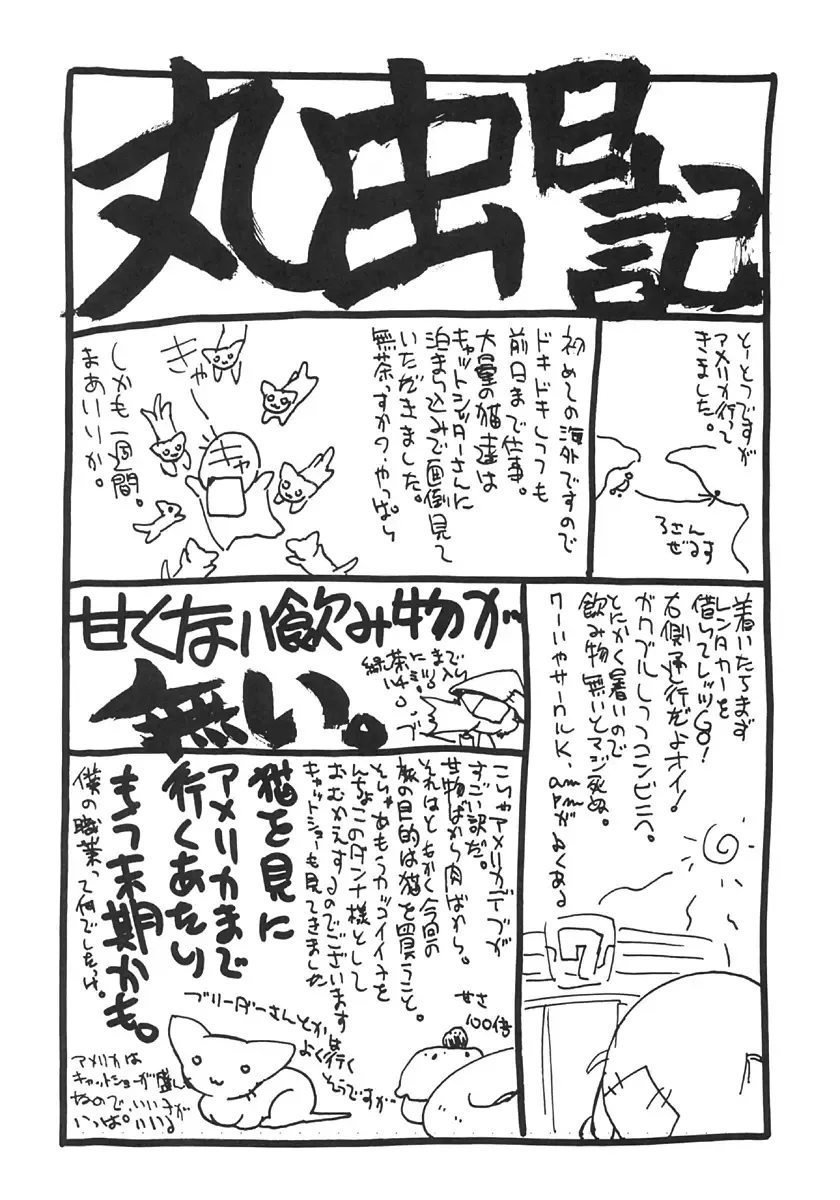 丸虫日記
とーとつですが
アメリカ行って
きました。
ろさん
ぜるす
初めての海外ですので
ドキドキしつつも
前日まで仕事。
大量の猫達は
キャットシッターさんに
泊まり込みで面倒見て
いただきました。
無茶っすか？やっぱり
きゃー
キャ
しかも一週間。
まあいいか。
着いたらまず
レンタカーを
借りてレッツGO！
右側通行だよオイ！
ガクブルしつつコンビニへ。
とにかく暑いので
飲み物無いとマジ死ぬ。
7-11やサークルK、ampmがよくある
7
甘くない飲み物が
無い。
緑茶にまで
ハチミツ入り
こりゃアメリカデブが
すごい訳だ。
甘物ばかり肉ばかり。
それはともかく今回の
旅の目的は猫を買うこと。
そりゃあもうカッコイイネを
んちょこのダンナ様として
おむかえするのでございます
キャットショーも見てきました
猫を見に
アメリカまで
行くあたり
もう末期かも。
僕の職業って何でしたっけ。
甘さ
100倍
ブリーダーさんとかは
よく行く
そうですが
アメリカは
キャットショーが盛ん
なので、いいネが
いっぱいいる